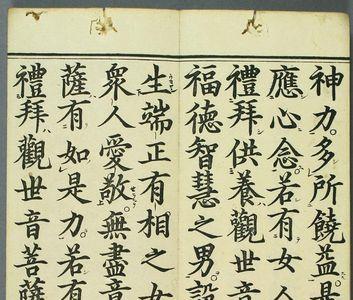 神力多所饒益是
應心念若有女人
禮拜供養觀世音
福德智慧之男設
生端正有相之女
衆人愛敬無盡意
薩有如是力若有
禮拜觀世音菩薩